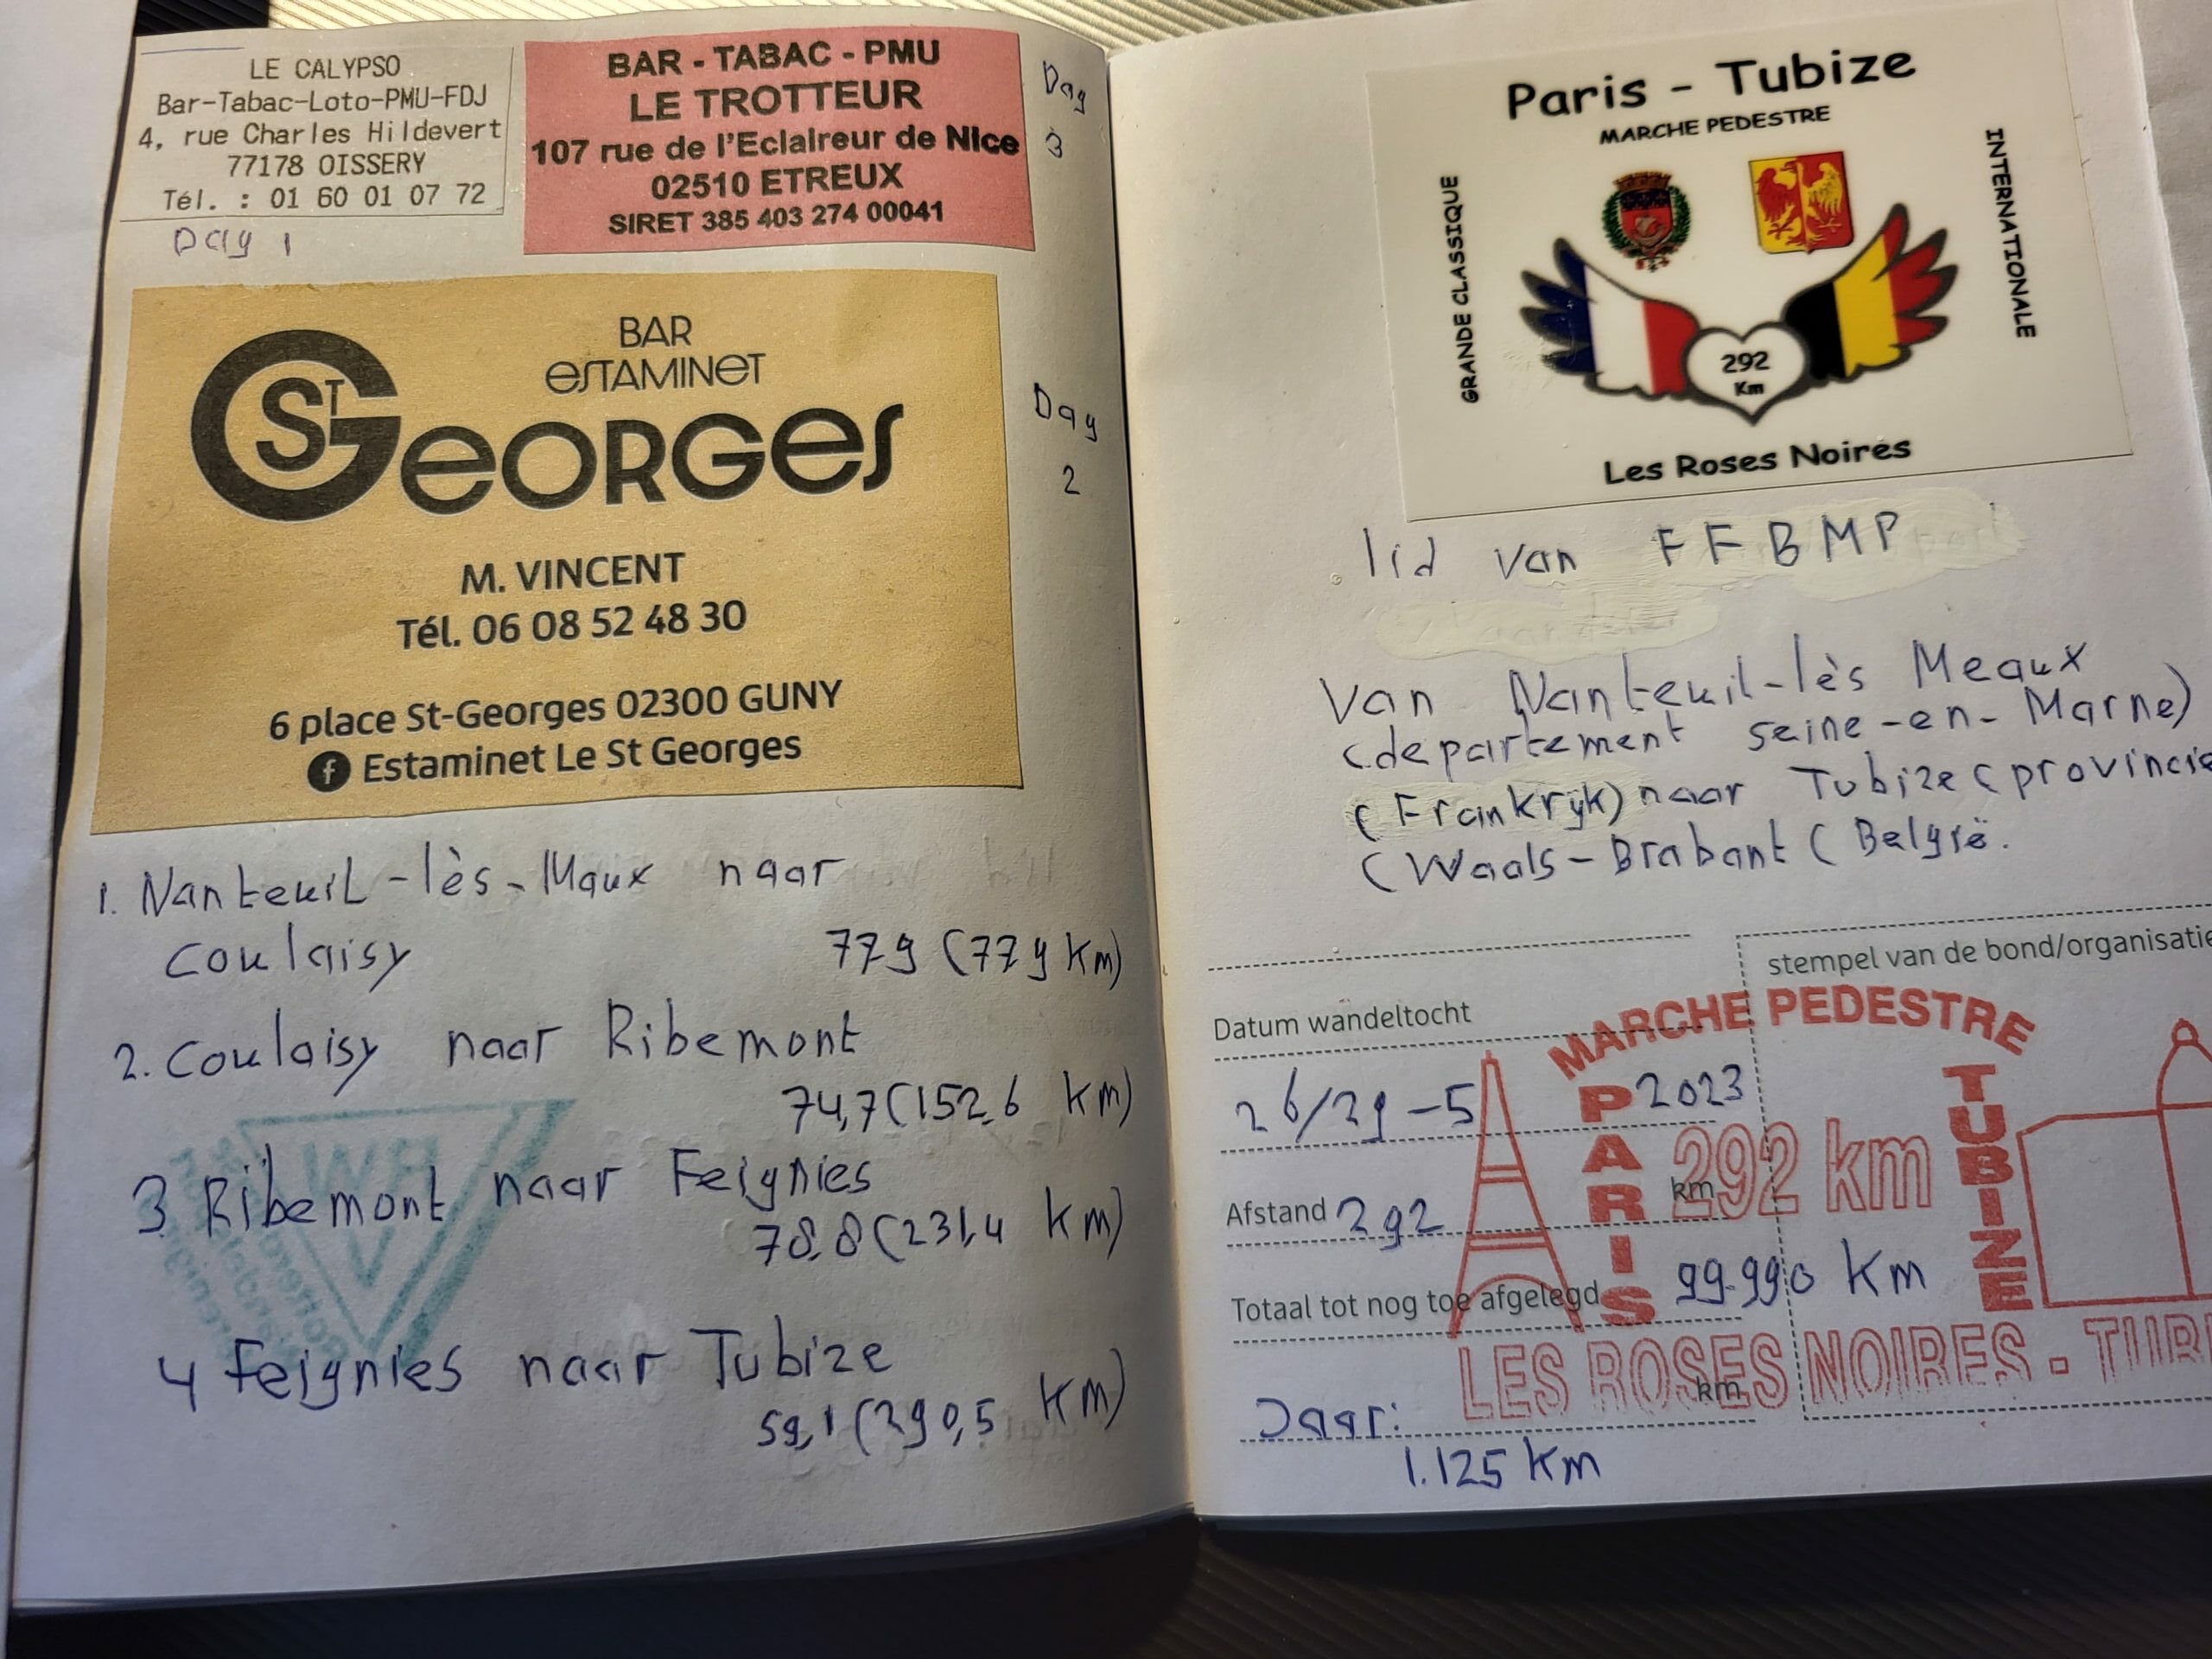 LE CALYPSO
Bar-Tabac-Loto-PMU-FDJ
4, rue Charles Hildevert
77178 OISSERY
Tél. : 01 60 01 07 72
Day 1
BAR - TABAC - PMU
LE TROTTEUR
107 rue de l'Eclaireur de Nice
02510 ETREUX
SIRET 385 403 274 00041
Day
3
BAR
ESTAMINET
ST GEORGES
Day
2
M. VINCENT
Tél. 06 08 52 48 30
6 place St-Georges 02300 GUNY
f Estaminet Le St Georges
1. Nanteuil-lès-Maux naar
Coulaisy 77,9 (77,9 km)
2. Coulaisy naar Ribemont
74,7 (152,6 km)
3. Ribemont naar Feignies
78,8 (231,4 km)
4 Feignies naar Tubize
59,1 (290,5 km)
Paris - Tubize
MARCHE PEDESTRE
GRANDE CLASSIQUE
INTERNATIONALE
292
Km
Les Roses Noires
lid van FFBMP
Van Nanteuil-lès Meaux
(departement seine-en-Marne)
(Frankrijk) naar Tubize (provincie
(Waals-Brabant (België.
stempel van de bond/organisatie
Datum wandeltocht
26/29-5 2023
Afstand 292 km
Totaal tot nog toe afgelegd 99.990 km
km
Jaar:
1.125 km
MARCHE PEDESTRE
PARIS
292 km
TUBIZE
LES ROSES NOIRES - TUBI